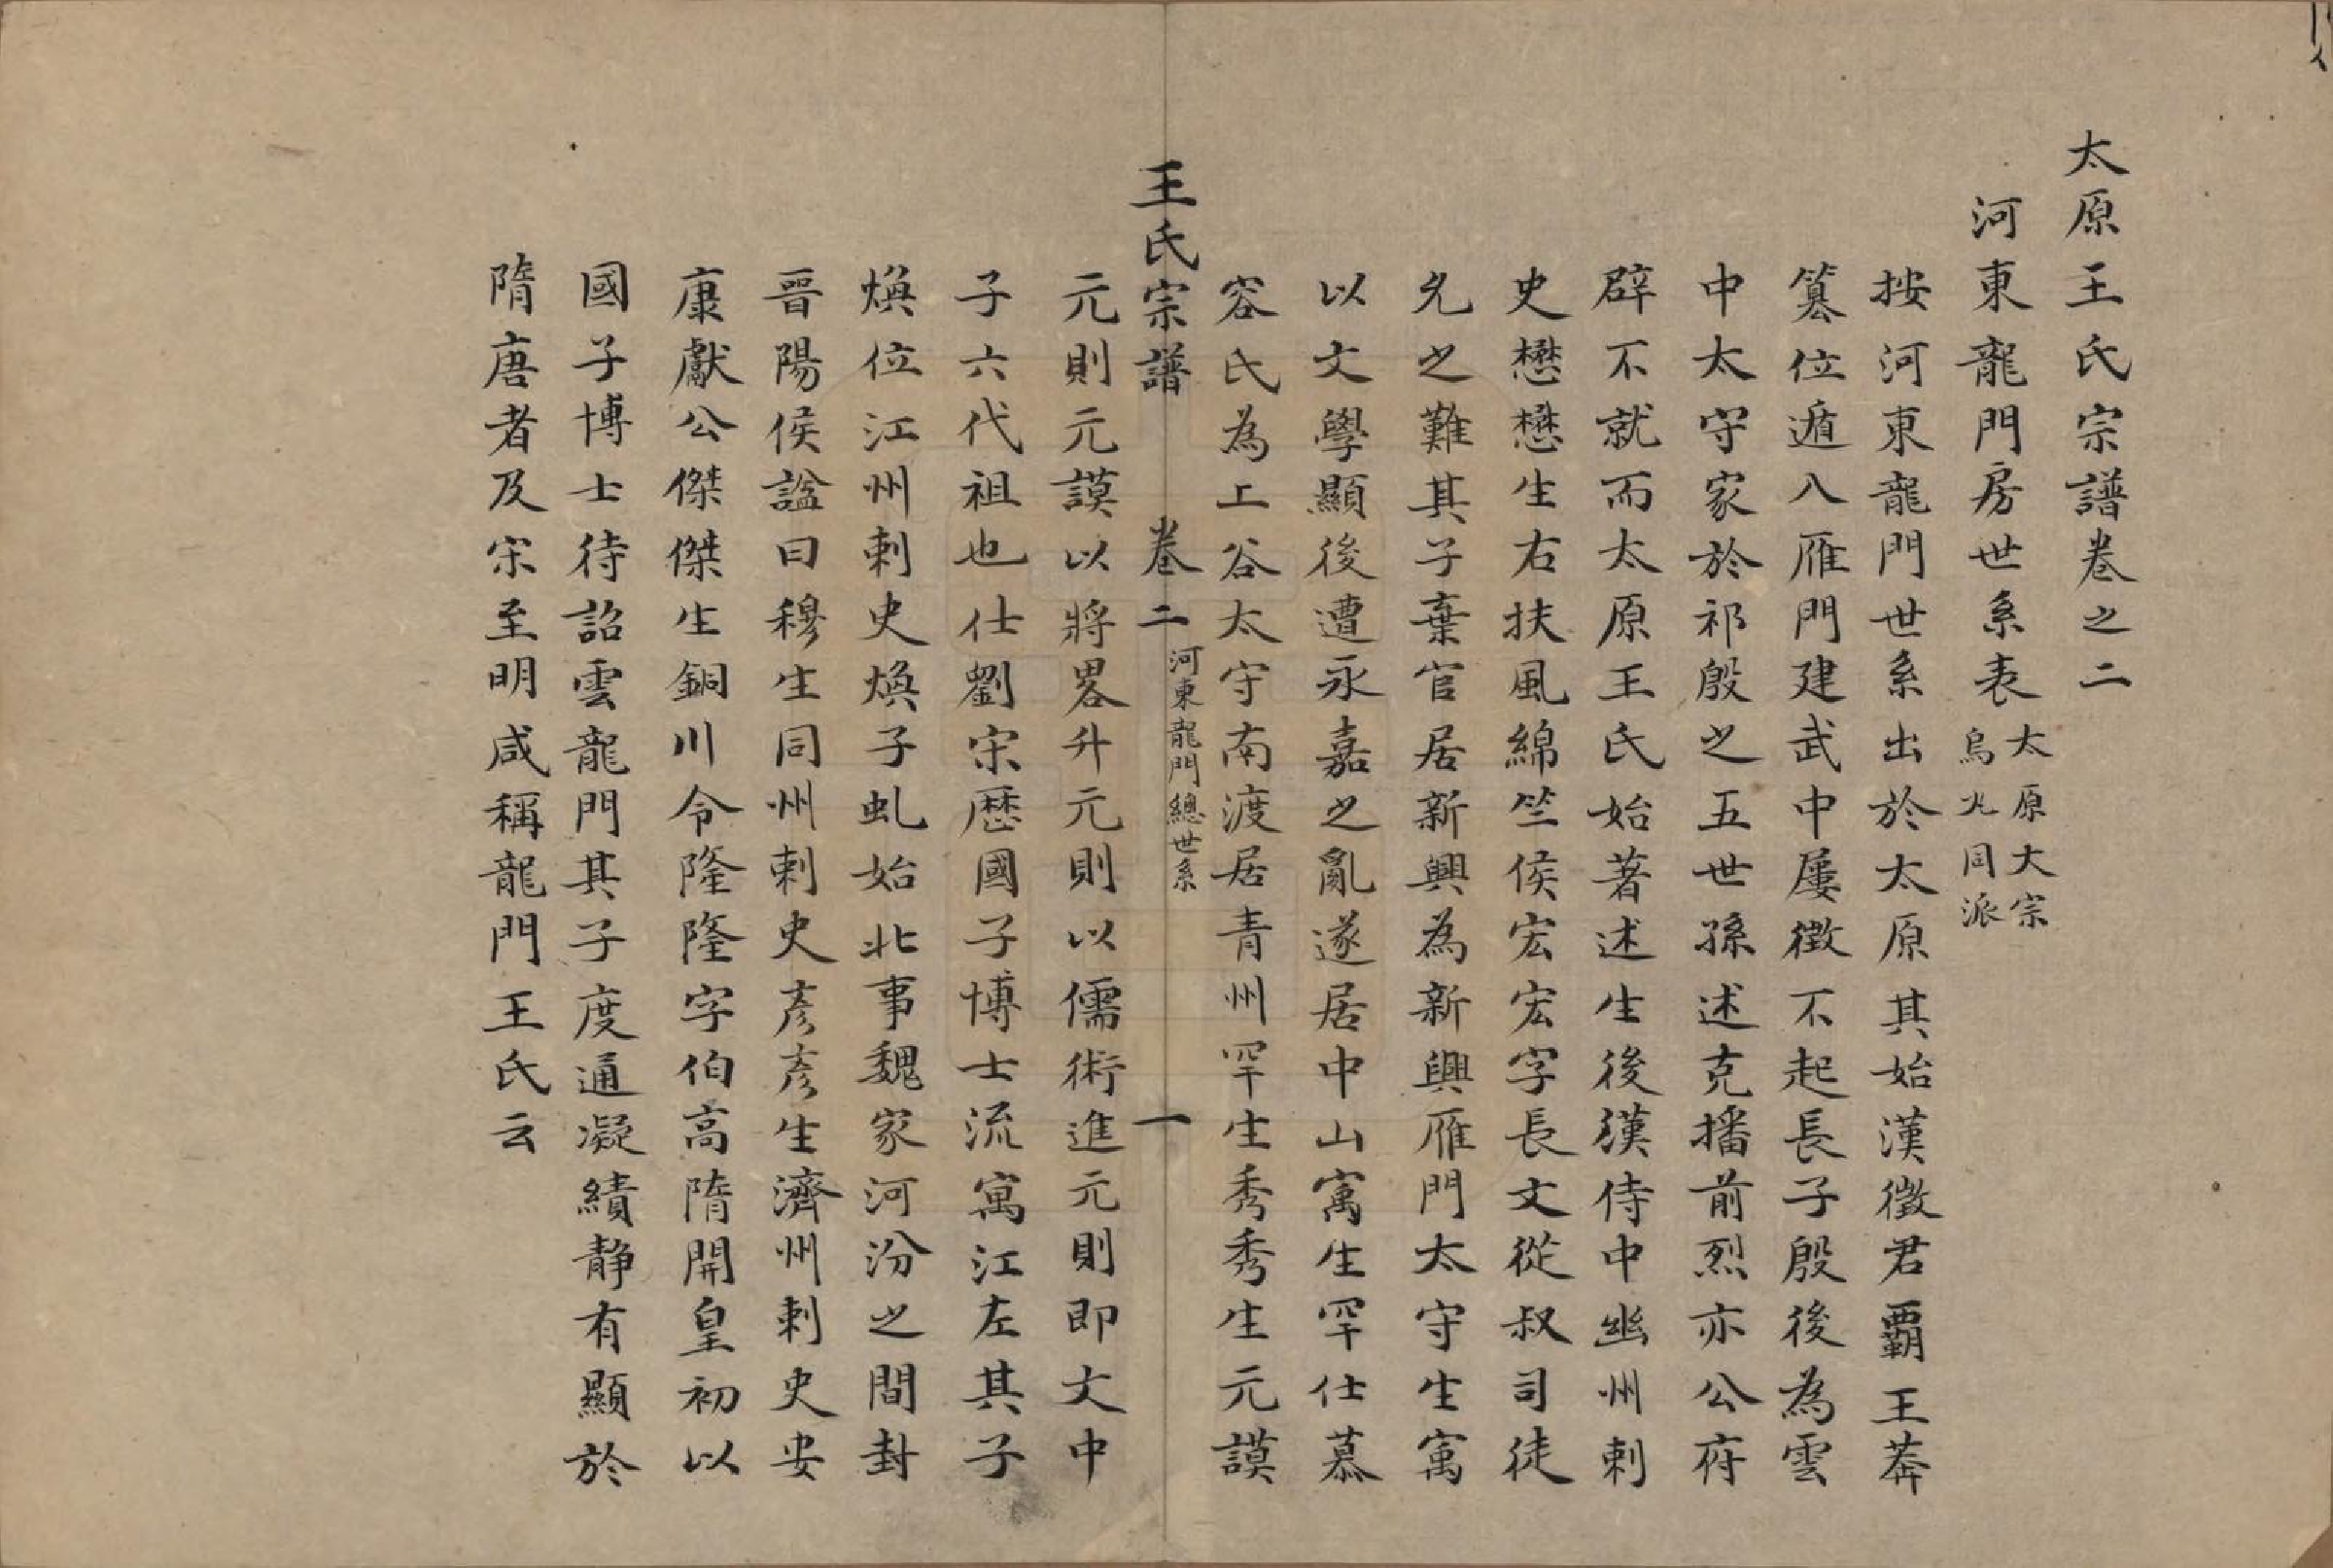 太原王氏宗譜卷之二
河東龍門房世系表
太原大宗
烏丸同派
按河東龍門世系出於太原其始漢徵君霸王莽
篡位遁入雁門建武中屢徵不起長子殷後為雲
中太守家於祁殷之五世孫述克播前烈亦公府
辟不就而太原王氏始著述生後漢侍中幽州刺
史懋懋生右扶風綿竺侯宏宏字長文從叔司徒
允之難其子棄官居新興為新興雁門太守生寓
以文學顯後遭永嘉之亂遂居中山寓生罕仕慕
容氏為上谷太守南渡居青州罕生秀秀生元謨
王氏宗譜 卷二 河東龍門總世系 一
元則元謨以將畧升元則以儒術進元則即文中
子六代祖也仕劉宋歷國子博士流寓江左其子
煥位江州刺史煥子虬始北事魏家河汾之間封
晉陽侯諡曰穆生同州刺史彥彥生濟州刺史安
康獻公傑傑生銅川令隆隆字伯高隋開皇初以
國子博士待詔雲龍門其子度通凝績静有顯於
隋唐者及宋至明咸稱龍門王氏云